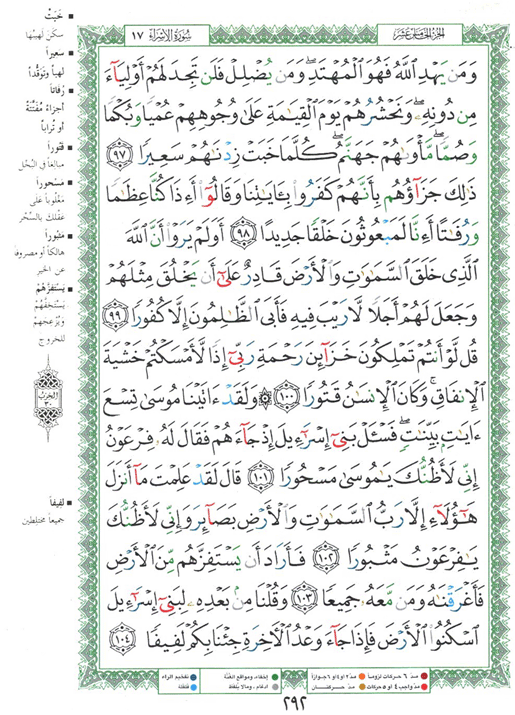 الجزء الخامس عشر
سورة الإسراء ١٧
وَمَن يَهْدِ ٱللَّهُ فَهُوَ ٱلْمُهْتَدِ ۖ وَمَن يُضْلِلْ فَلَن تَجِدَ لَهُمْ أَوْلِيَآءَ
مِن دُونِهِۦ ۖ وَنَحْشُرُهُمْ يَوْمَ ٱلْقِيَـٰمَةِ عَلَىٰ وُجُوهِهِمْ عُمْيًا وَبُكْمًا
وَصُمًّا ۖ مَّأْوَىٰهُمْ جَهَنَّمُ ۖ كُلَّمَا خَبَتْ زِدْنَـٰهُمْ سَعِيرًا ٩٧
ذَٰلِكَ جَزَآؤُهُم بِأَنَّهُمْ كَفَرُوا۟ بِـَٔايَـٰتِنَا وَقَالُوٓا۟ أَءِذَا كُنَّا عِظَـٰمًا
وَرُفَـٰتًا أَءِنَّا لَمَبْعُوثُونَ خَلْقًا جَدِيدًا ٩٨ أَوَلَمْ يَرَوْا۟ أَنَّ ٱللَّهَ
ٱلَّذِى خَلَقَ ٱلسَّمَـٰوَٰتِ وَٱلْأَرْضَ قَادِرٌ عَلَىٰٓ أَن يَخْلُقَ مِثْلَهُمْ
وَجَعَلَ لَهُمْ أَجَلًا لَّا رَيْبَ فِيهِ فَأَبَى ٱلظَّـٰلِمُونَ إِلَّا كُفُورًا ٩٩
قُل لَّوْ أَنتُمْ تَمْلِكُونَ خَزَآئِنَ رَحْمَةِ رَبِّىٓ إِذًا لَّأَمْسَكْتُمْ خَشْيَةَ
ٱلْإِنفَاقِ ۚ وَكَانَ ٱلْإِنسَـٰنُ قَتُورًا ١٠٠ ۞ وَلَقَدْ ءَاتَيْنَا مُوسَىٰ تِسْعَ
ءَايَـٰتٍۭ بَيِّنَـٰتٍ ۖ فَسْـَٔلْ بَنِىٓ إِسْرَٰٓءِيلَ إِذْ جَآءَهُمْ فَقَالَ لَهُۥ فِرْعَوْنُ
إِنِّى لَأَظُنُّكَ يَـٰمُوسَىٰ مَسْحُورًا ١٠١ قَالَ لَقَدْ عَلِمْتَ مَآ أَنزَلَ
هَـٰٓؤُلَآءِ إِلَّا رَبُّ ٱلسَّمَـٰوَٰتِ وَٱلْأَرْضِ بَصَآئِرَ وَإِنِّى لَأَظُنُّكَ
يَـٰفِرْعَوْنُ مَثْبُورًا ١٠٢ فَأَرَادَ أَن يَسْتَفِزَّهُم مِّنَ ٱلْأَرْضِ
فَأَغْرَقْنَـٰهُ وَمَن مَّعَهُۥ جَمِيعًا ١٠٣ وَقُلْنَا مِنۢ بَعْدِهِۦ لِبَنِىٓ إِسْرَٰٓءِيلَ
ٱسْكُنُوا۟ ٱلْأَرْضَ فَإِذَا جَآءَ وَعْدُ ٱلْـَٔاخِرَةِ جِئْنَا بِكُمْ لَفِيفًا ١٠٤
خَبَتْ
سكن لهيبها
سعيراً
لهباً وتوقّداً
رُفاتاً
أجزاءً مُفتّتةً
أو تُراباً
قتوراً
مبالغاً في البُخل
مسحوراً
مغلوباً على
عقلك بالسّحر
مثبوراً
هالكاً أو مصروفاً
عن الخير
يستفزّهم
يستخفّهم
ويزعجهم
للخروج
الحزب
٣٠
لفيفاً
جميعاً مختلطين
مدّ ٦ حركات لزوماً
مدّ ٢ أو ٤ أو ٦ جوازاً
إخفاء، ومواقع الغُنّة
تفخيم الراء
مدّ واجب ٤ أو ٥ حركات
مدّ حركتان
إدغام، وما لا يُلفظ
قلقلة
٢٩٢